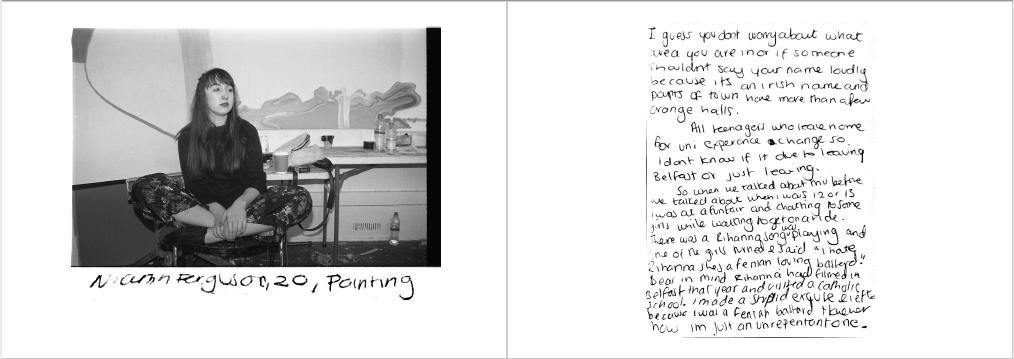 Ferguson, 20, Painting
I guess you dont worry about what
area you are in or if someone
shouldnt say your name loudly
because its an irish name and
parts of town have more than a few
orange halls.
All teenagers who leave home
for uni experance a change so
I dont know if it due to leaving
Belfast or just leaving.
So when we talked about this before
we talked about when i was 12 or 13
i was at a funfair and chatting to some
girls while waiting to get on a ride.
There was a Rihanna song playing and
one of the girls turned & said "i hate
Rihanna shes a fenian loving bastard."
Bear in mind Rihanna had filmed in
Belfast that year and visited a catholic
school. i made a stupid excuse & left
because i was a fenian bastard However
now im just an unrepentant one.